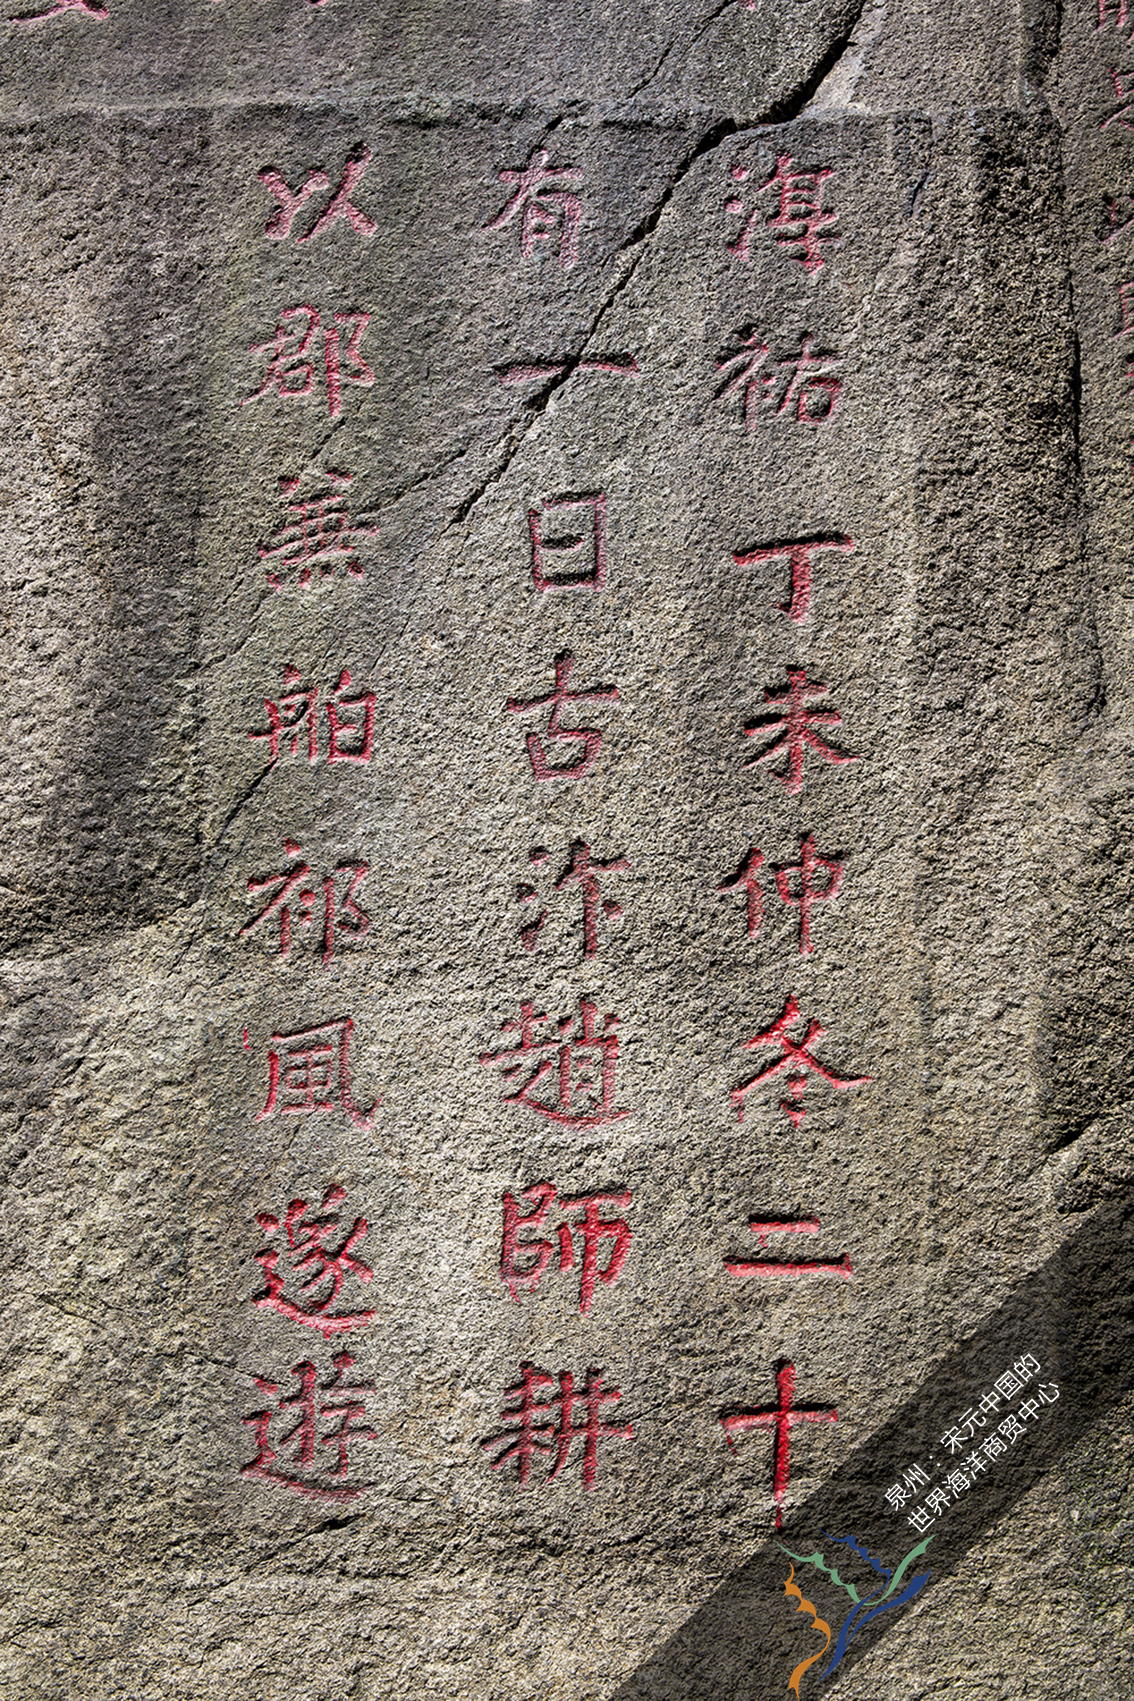 淳祐丁未仲冬二十
有一日古汴趙師耕
以郡兼舶祁風遂遊
泉州：宋元中国的
世界海洋商贸中心